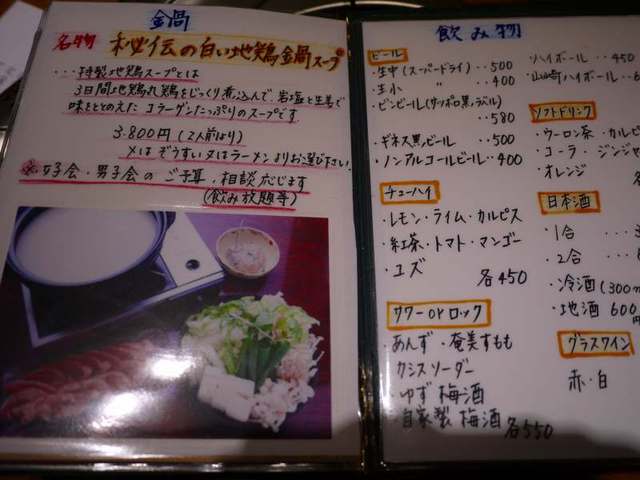 鍋
名物 秘伝の白い地鶏鍋スープ
・・・特製地鶏スープとは
3日間地鶏丸鶏をじっくり煮込んで、岩塩と生姜で
味をととのえた コラーゲンたっぷりのスープです
3.800円(2人前より)
〆はぞうすい又はラーメンよりお選び下さい。
※女子会・男子会のご予算、相談応じます
(飲み放題等)
飲み物
ビール
・生中(スーパードライ)・・500
・生小 〃 ・・400
・ビンビール(サッポロ黒ラベル)
・・580
・ギネス黒ビール ・・500
・ノンアルコールビール・・400
チューハイ
・レモン・ライム・カルピス
・紅茶・トマト・マンゴー
・ユズ 各450
サワーorロック
・あんず・奄美すもも
カシスソーダー
・ゆず梅酒
・自家製梅酒 各550
ハイボール ・・450
・山崎ハイボール
ソフトドリンク
・ウーロン茶・カルピ
・コーラ・ジンジャ
・オレンジ
日本酒
・1合 ・・・
・2合 ・・・
・冷酒(300m
・地酒 600円
グラスワイン
赤・白